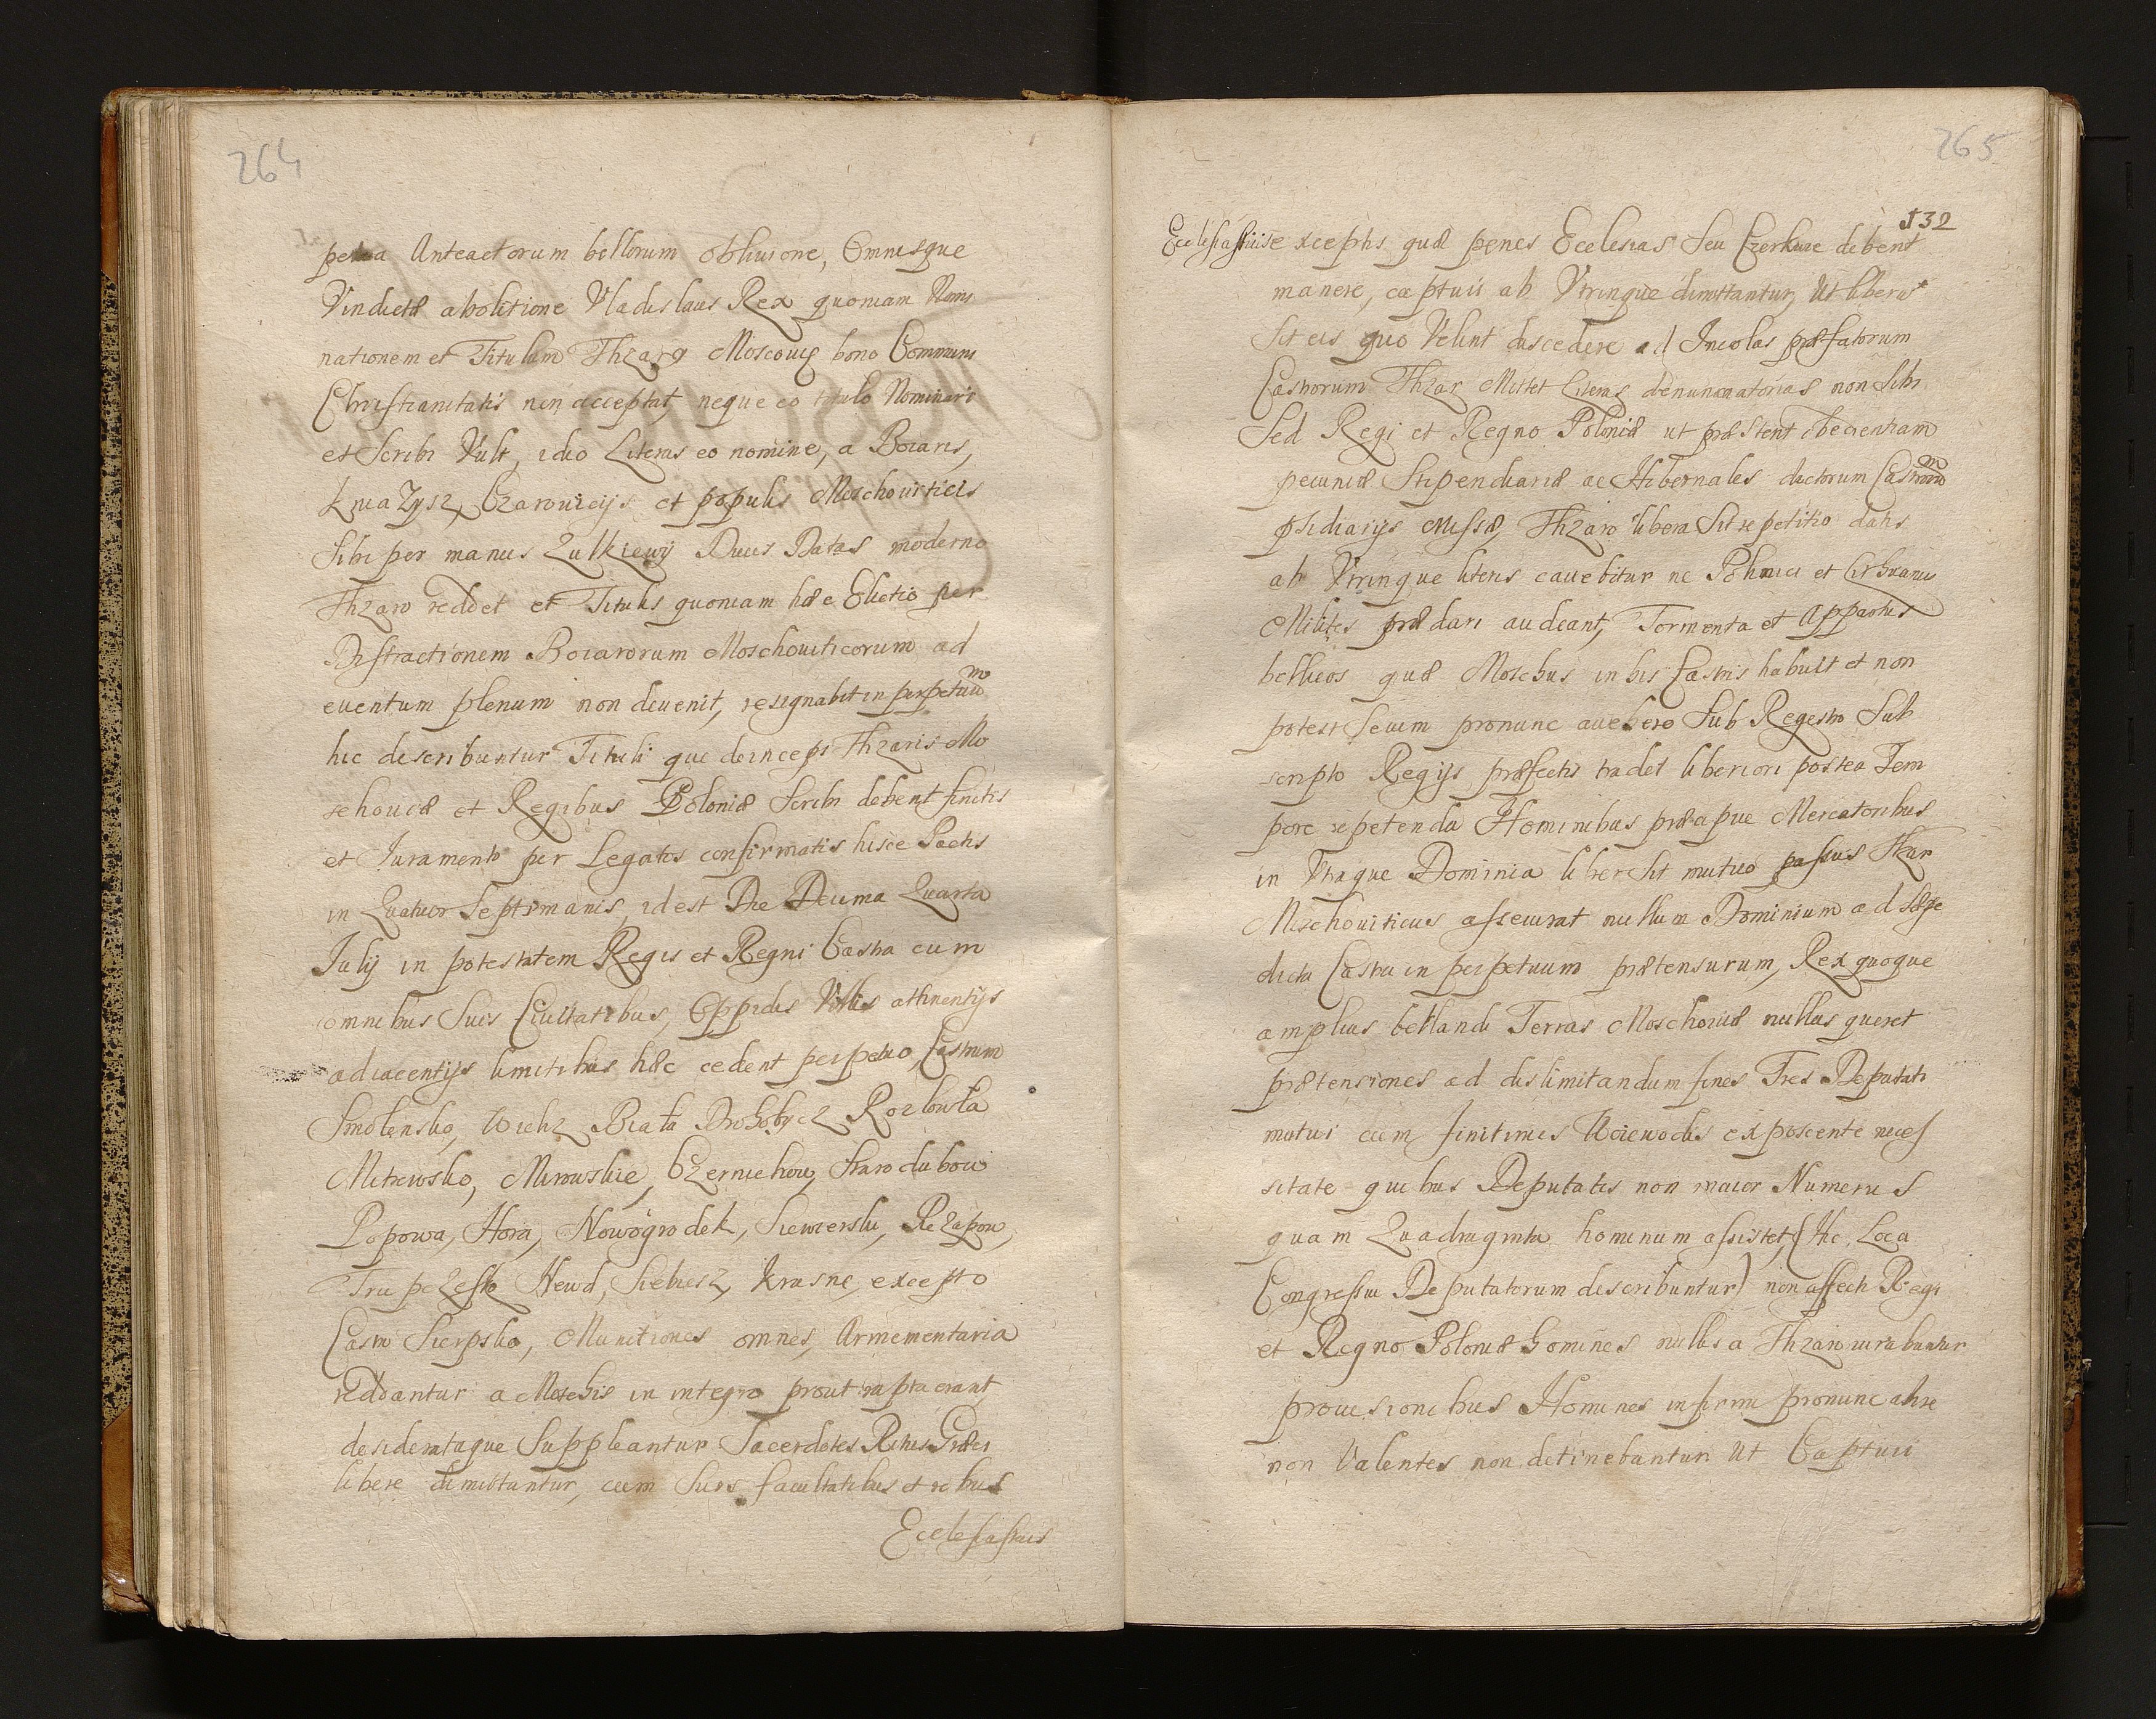 264
petua Anteactorum bellorum obliuione, Omnisque
Vindictæ abolitione Vladislaus Rex quoniam Nomi
nationem et Titulum Thzarę Moscouię bono Communi
Christianitatis non acceptat, neque eo titulo Nominari
et Scribi Vult, ideo Literas eo nomine, a Boiaris,
KniaZysz, Czarouicijs et populis Moschouiticis
Sibi per manus Zulkiewij Ducis Datas moderno
Thzaro reddet et Titulis quoniam hæc Electio per
Distractionem Boiarorum Moschouiticorum ad
euentum plenum non deuenit, resignabit in perpetuum
hic describuntur Tituli qui deinceps Thzaris Mo
schouiæ et Regibus Poloniæ Scribi debent finitis
et Iuramento per Legatos confirmatis hisce Pactis
in Quatuor Septimanis, id est Die Decima Quarta
Iulij in potestatem Regis et Regni Castra cum
omnibus Suis Ciuitatibus, Oppidis Villis attinentijs
adiacentijs limitibus hæc cedent perpetuo, Castrum
Smolensko, Wieliz Biała Drohobycz Rozlowła
Mitiewsko, Murowskie, Czerniehow, Starodubow
Popowa, Hora, Nowogrodek, Siewierski, Rezapow,
Trupczesko Newel, Siebiesz, Krasne, excepto
Castro Sierpsko, Munitiones omnes, Armementaria
reddantur a Moschis in integro prout rapta erant,
desiderataque Suppleantur Sacerdotes Ritus Græci
libere dimittantur, cum Suis facultatibus et rebus
Ecclesiasticis
265
132
Ecclesiasticis exceptis quæ penes Ecclesias Seu Czerkwie debent
manere, captiui ab Vtrinque dimittantur, Ut liberum
Sit eis quo Velint discedere ad Incolas præfatorum
Castrorum Thzar Mittet Literas denunciatorias non Sibi
Sed Regi et Regno Poloniæ ut præstent obedientiam
pecuniæ Stipendiariæ ac Hibernales dictorum Castrorum
pręsidiarijs Missæ, Thzaro libera Sit repetitio datis
ab Vtrinque literis cauebitur ne Polonici et Lithuanici
Milites prædari audeant, Tormenta et Apparatus
bellicos quæ Moschus in his Castris habuit et non
potest Secum pronunc auehere Sub Regestro Sub
scripto Regijs præfectis tradet liberiori postea Tem
pore repetenda Hominibus præcipue Mercatoribus
in Vtraque Dominia liber sit mutuo passus Thzar
Moschouiticus assecurat nullum Dominium ad Sæpe
dicta Castra in perpetuum prætensurum, Rex quoque
amplius bellandi Terras Moschouiæ nullas queret
prætensiones ad dislimitandum fines Tres Deputati
mutui cum finitimis Woiewodis exposcente neces
sitate quibus Deputatis non maior Numerus
quam Quadraginta hominum assistet, (Hic Loca
Congressu Deputatorum describuntur) non affecti Regi
et Regno Poloniæ homines nullis a Thzaro iuuabuntur
prouisionibus Homines infirmi pronunc abire
non Valentes non detinebuntur Ut Captiui